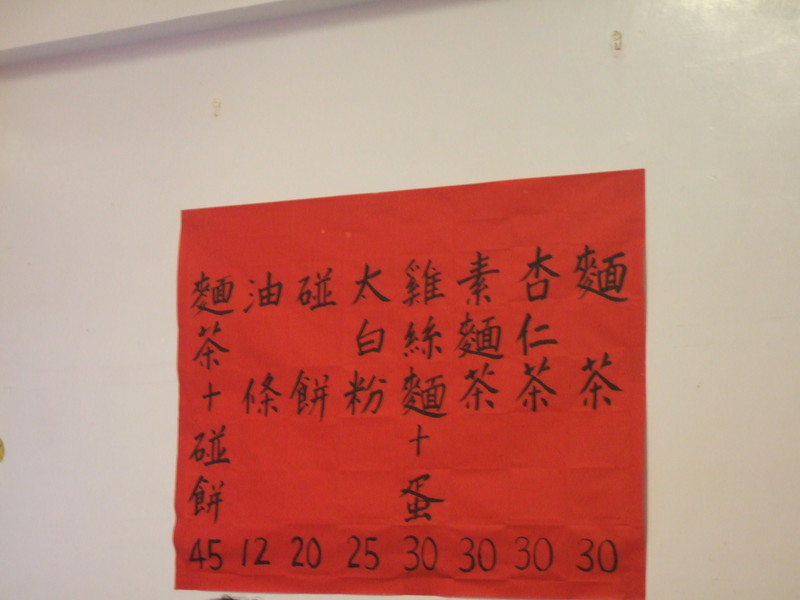 麵茶 30
杏仁茶 30
素麵茶 30
雞絲麵+蛋 30
太白粉 25
碰餅 20
油條 12
麵茶+碰餅 45